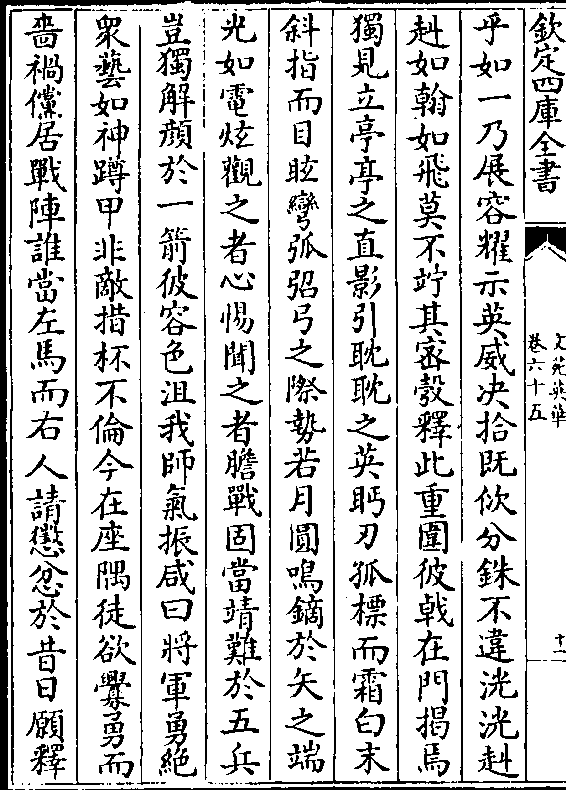 欽定四庫全書
文苑英華
卷六十五
十一
乎如一乃展容耀示英威决拾既佽分銖不違洸洸赳
赳如翰如飛莫不竚其密彀釋此重圍彼戟在門揭焉
獨見立亭亭之直影引耽耽之英眄刃孤標而霜白末
斜指而目眩彎弧弨弓之際勢若月圓鳴鏑於矢之端
光如電炫觀之者心惕聞之者膽戰固當靖難於五兵
豈獨解顔於一箭彼容色沮我師氣振咸曰將軍勇絶
衆藝如神蹲甲非敵措杯不倫今在座隅徒欲釁勇而
嗇禍儻居戰陣誰當左馬而右人請懲忿於昔日願釋